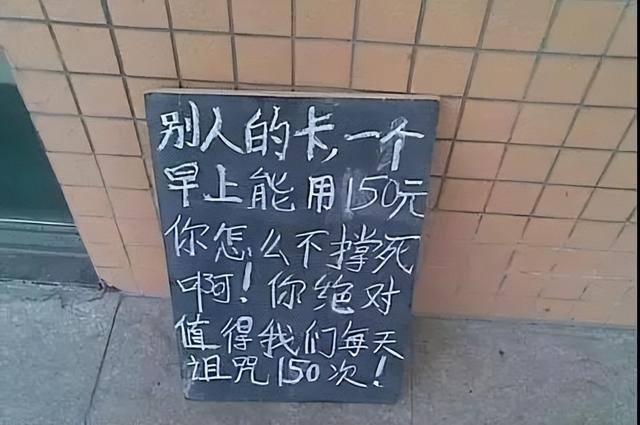 别人的卡,一个
早上能用150元
你怎么不撑死
啊!你绝对
值得我们每天
诅咒150次!